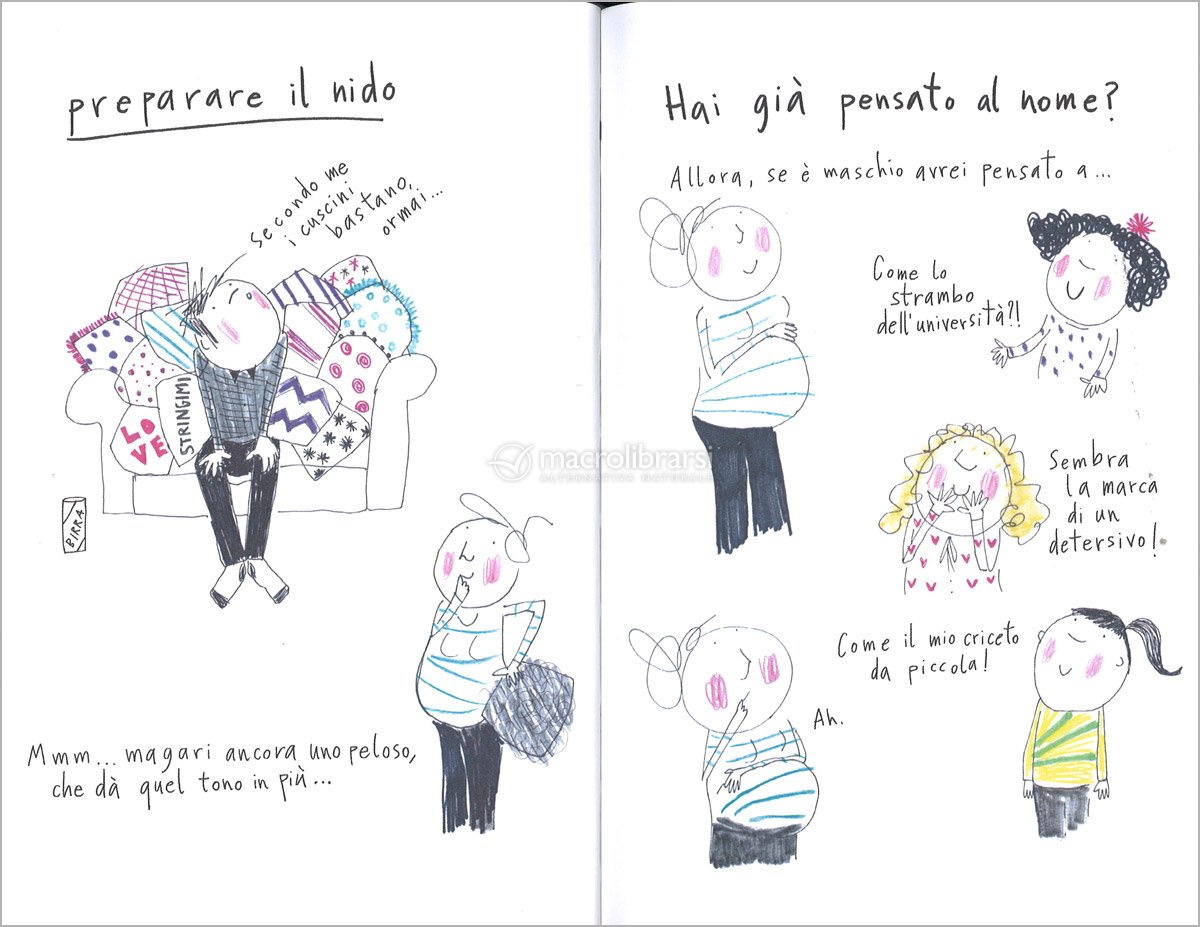 preparare il nido
secondo me
i cuscini
bastano,
ormai...
LO
VE
STRINGIMI
BIRRA
Mmm... magari ancora uno peloso,
che dà quel tono in più...
Hai già pensato al nome?
Allora, se è maschio avrei pensato a...
Come lo
strambo
dell'università?!
Sembra
la marca
di un
detersivo!
Come il mio criceto
da piccola!
Ah.
macrolibrarsi
ALTERNATIVA NATURALE